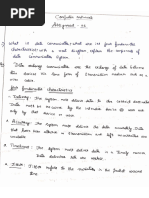 Computer network
Assignment - 01
What is data communication? what are its four fundamental
characteristics with a neat diagram explain the components of
data communication system.
Data communication are the exchange of data between
two devices via some form of transmission medium such as a
wire cable.
four fundamental characteristics
1. Delivery: The system must deliver data to the correct destination
Data must be received by the intended device or user
and only by that device or user.
2. Accuracy: The system must deliver the data accurately. Data
that have been altered in transmission and left uncorrected
are unusable.
3. Timeliness: The system must deliver data in a timely manner
Data delivered late are useless.
4. Jitter: Jitter refers to the variation in the packet arrival
time.